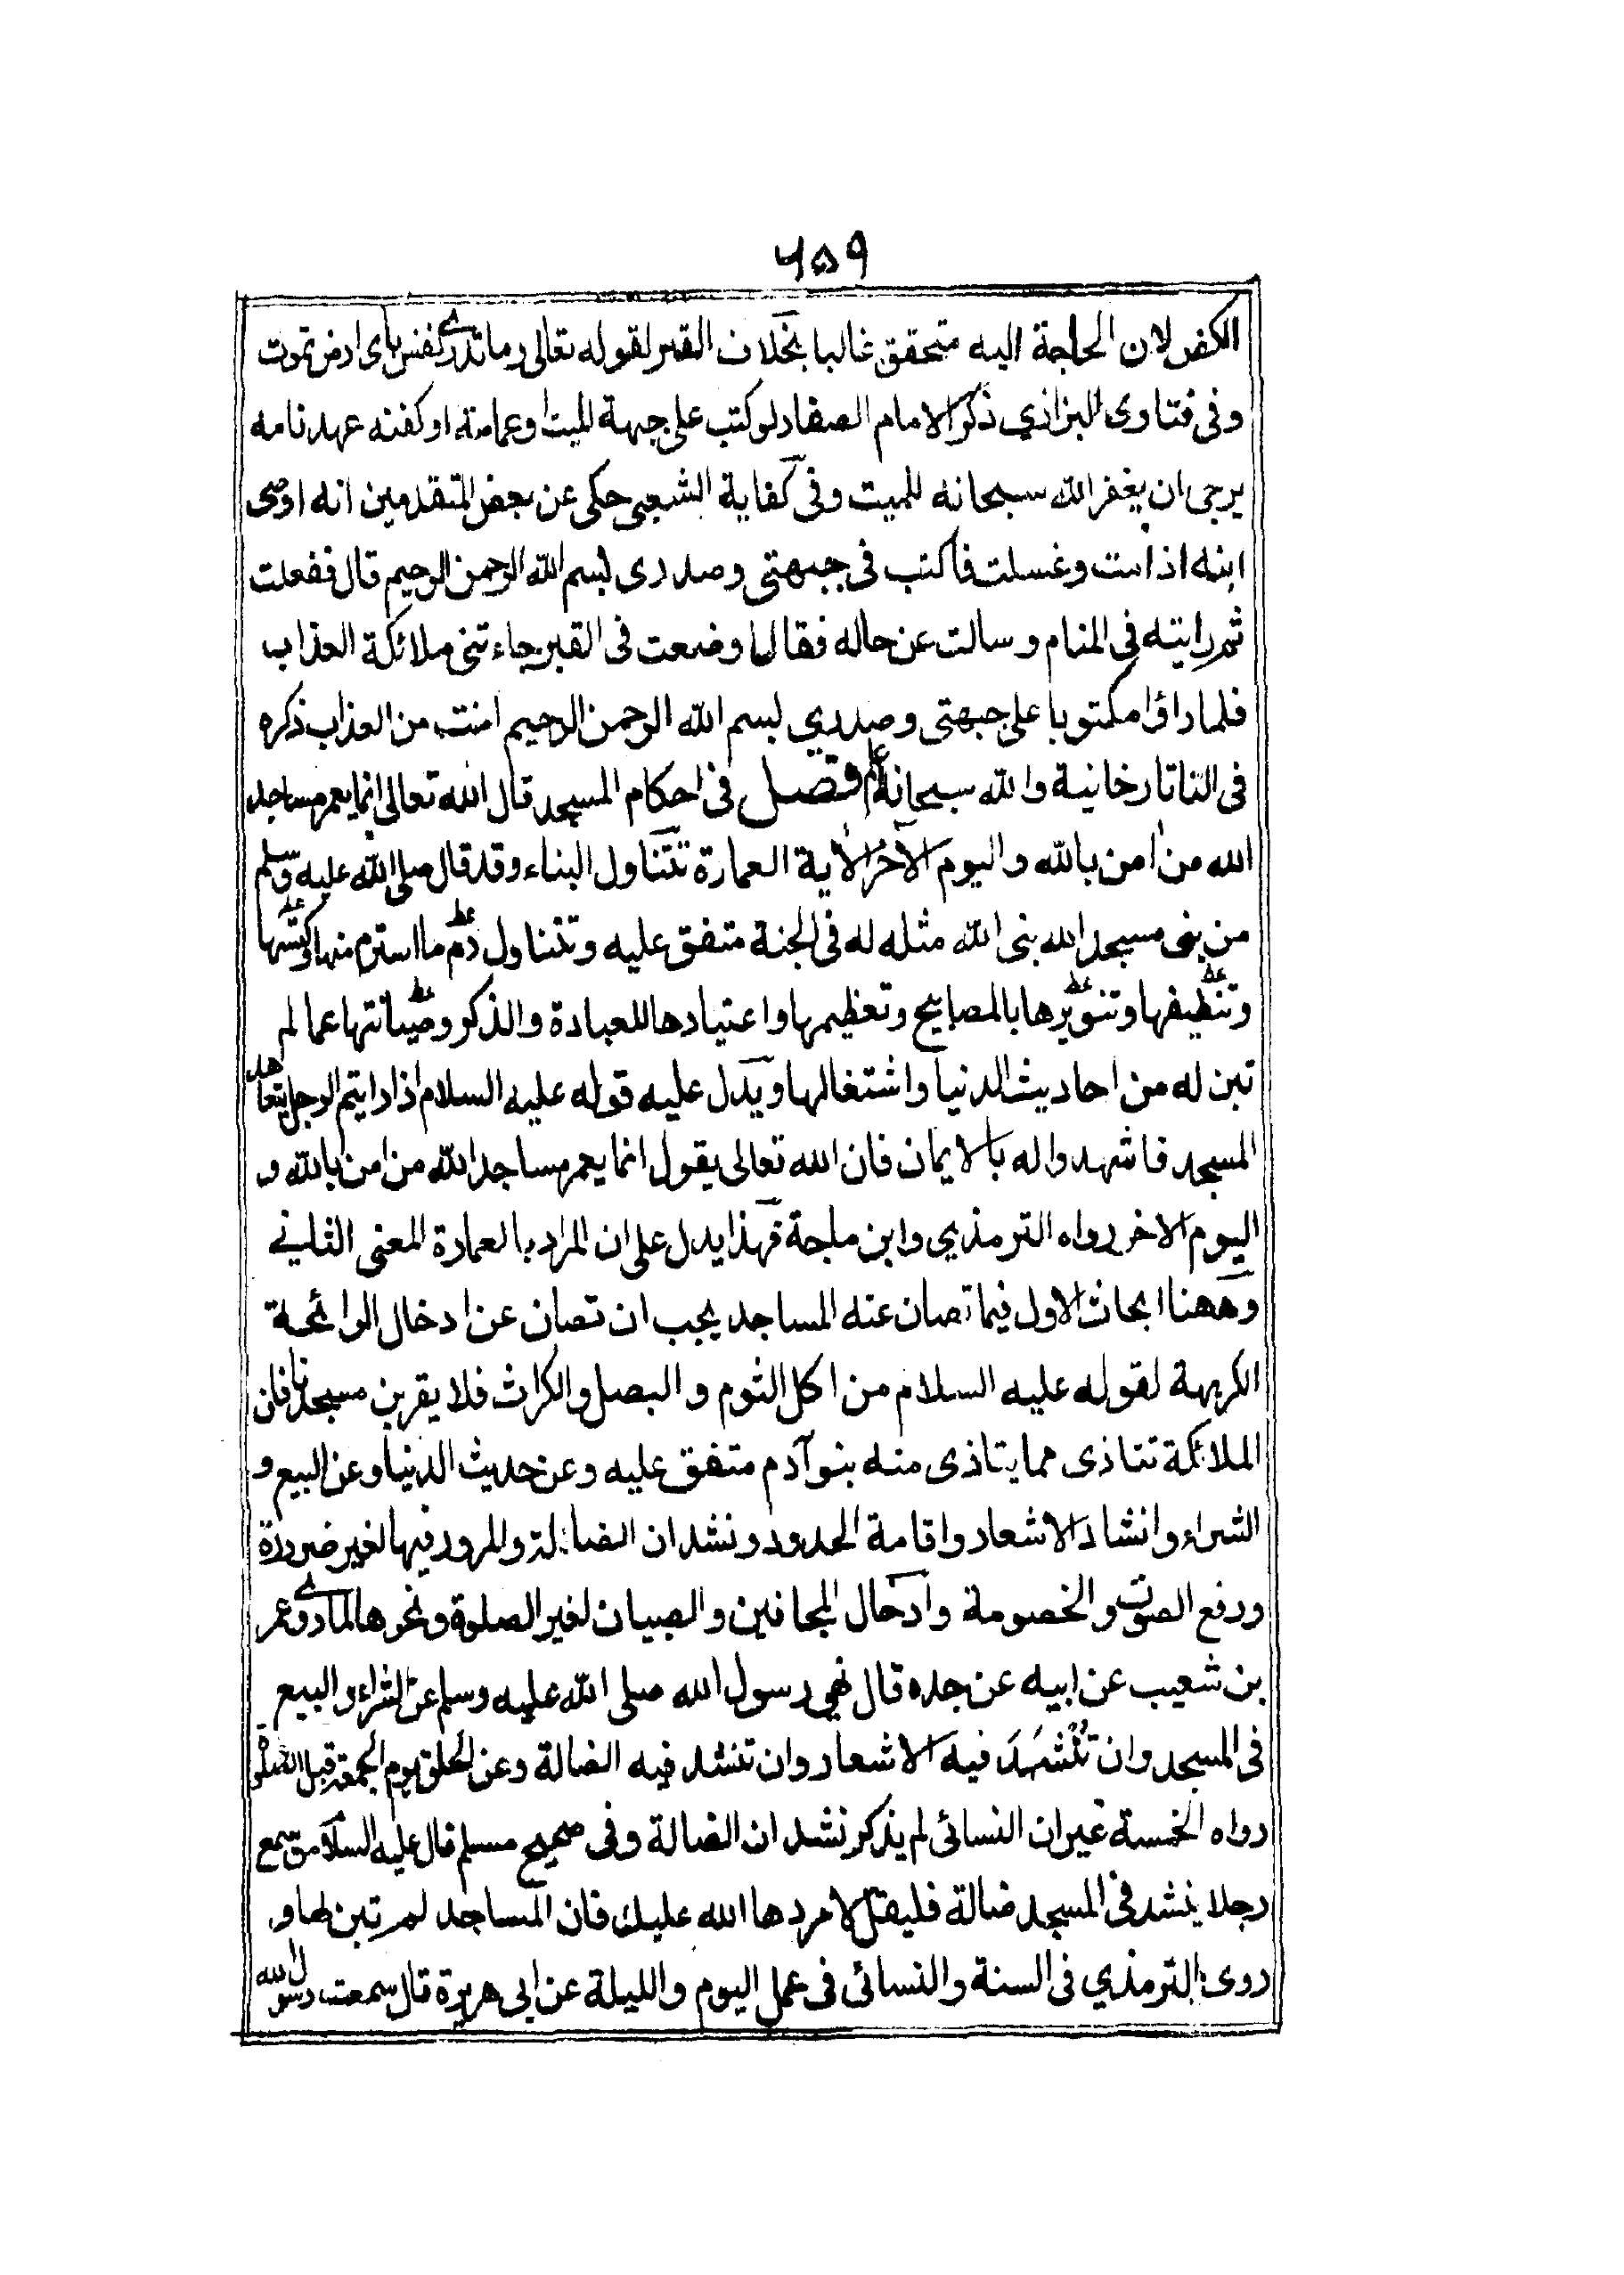 ٦٥٩
الكفن لان الحاجة اليه متحقق غالبا بخلاف القبر لقوله تعالى وما تدرى نفس باى ارض تموت
وفى فتاوى البزازي ذكر الامام الصفار لو كتب على جبهة الميت او عمامته او كفنه عهد نامه
يرجى ان يغفر الله سبحانه للميت وفى كفاية الشعبى حكى عن بعض المتقدمين انه اوصى
ابنه اذا مت وغسلت فاكتب فى جبهتى وصدرى بسم الله الرحمن الرحيم قال ففعلت
ثم رايته فى المنام وسالت عن حاله فقال لما وضعت فى القبر جاءتنى ملائكة العذاب
فلما راؤا مكتوبا على جبهتى وصدري بسم الله الرحمن الرحيم امنت من العذاب ذكره
فى التاتارخانية والله سبحانه اعلم فصل فى احكام المسجد قال الله تعالى انما يعمر مساجد
الله من امن بالله واليوم الآخر الاية العمارة تتناول البناء وقد قال صلى الله عليه وسلم
من بنى مسجد الله بنى الله مثله له فى الجنة متفق عليه وتتناول رم ما استرم منها وكنسها
وتنظيفها وتنويرها بالمصابيح وتعظيمها واعتيادها للعبادة والذكر وصيانتها عما لم
تبن له من احاديث الدنيا واشتغالها ويدل عليه قوله عليه السلام اذا رايتم الرجل يتعاهد
المسجد فاشهدوا له بالايمان فان الله تعالى يقول انما يعمر مساجد الله من امن بالله و
اليوم الاخر رواه الترمذي وابن ماجة فهذا يدل على ان المراد بالعمارة المعنى الثاني
وههنا ابحاث الاول فيما تصان عنه المساجد يجب ان تصان عن ادخال الرائحة
الكريهة لقوله عليه السلام من اكل الثوم والبصل والكراث فلا يقربن مسجدنا فان
الملائكة تتاذى مما يتاذى منه بنو آدم متفق عليه وعن حديث الدنيا وعن البيع و
الشراء وانشاد الاشعار واقامة الحدود ونشدان الضالة والمرور فيها لغير ضرورة
ورفع الصوت والخصومة وادخال المجانين والصبيان لغير الصلوة ونحوها لما روى عمر
بن شعيب عن ابيه عن جده قال نهي رسول الله صلى الله عليه وسلم عن الشراء والبيع
فى المسجد وان تنشد فيه الاشعار وان تنشد فيه الضالة وعن الحلق يوم الجمعة قبل الصلوة
رواه الخمسة غير ان النسائى لم يذكر نشدان الضالة وفى صحيح مسلم قال عليه السلام من سمع
رجلا ينشد فى المسجد ضالة فليقل لا ردها الله عليك فان المساجد لم تبن لهذا و
روى الترمذي فى السنة والنسائى فى عمل اليوم والليلة عن ابى هريرة قال سمعت رسول الله